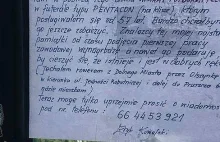 w futerale typu PENTACON (na klucz), którym
posługiwałem się od 57 lat. Bardzo chciałbym
go jeszcze zobaczyć. Znalazcy tej mojej najstar
pamiątki od czasu podjęcia pierwszej pracy
zawodowej wynagrodzę a nawet go podaruję
by cieszyć się, że istnieje i jest w dobrych ręk
(Jechałem rowerem z Dolnego Miasta przez Olszynk
w kierunku ul. Jedności Robotniczej i dalej do Pruszcza G
gdzie mieszkam)
Teraz mogę tylko uprzejmie prosić o wiadomoś
pod nr. telefonu: 66 4453 921